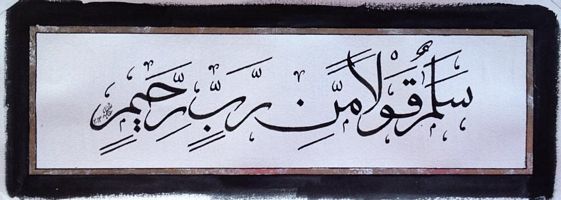 سَلَٰمٌ قَوْلًا مِّن رَّبٍّ رَّحِيمٍ